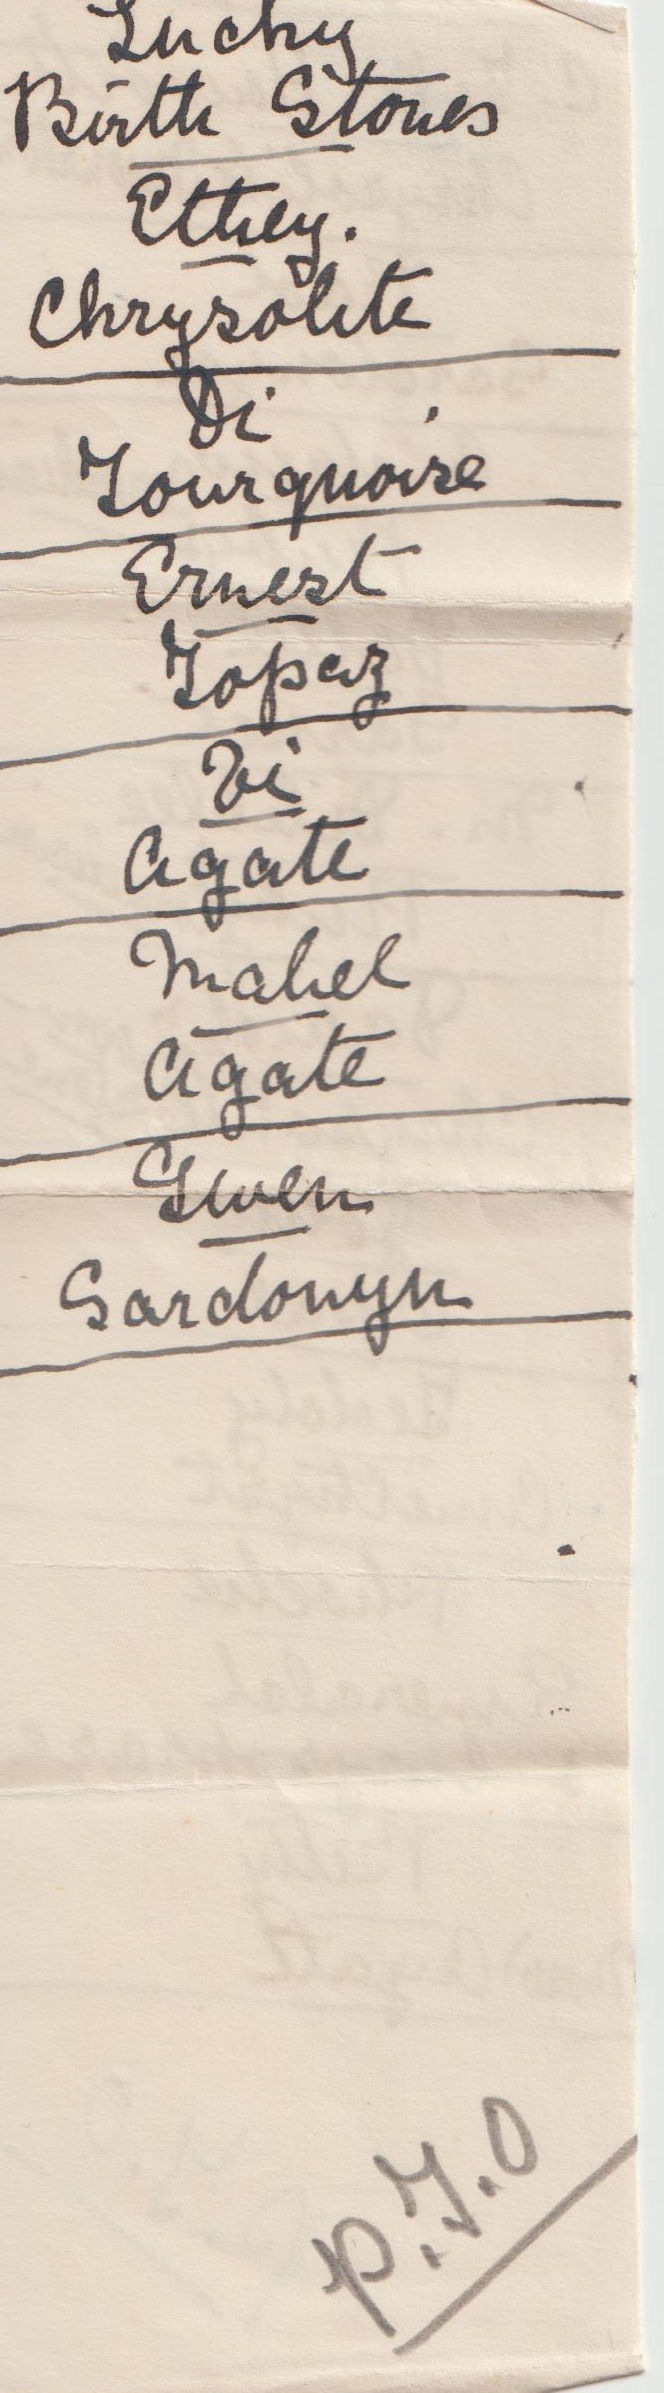 Lucky
Birth Stones
Ethey.
Chrysolite
Di
Tourquoise
Ernest
Topaz
Vi
Agate
Mabel
Agate
Gwen
Sardonyn
P.T.O